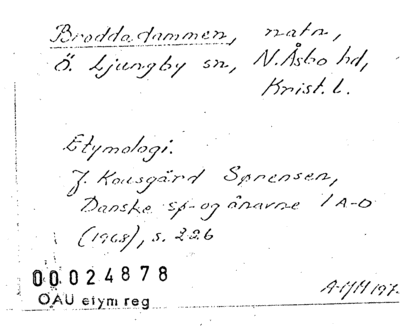 Broddadammen, natn,
Ö. Ljungby sn, N. Åsbo hd,
Krist. l.
Etymologi.
J. Kousgård Sørensen,
Danske sø- og ånavne 1 A-D
(1968), s. 226
00024878
OAU etym reg